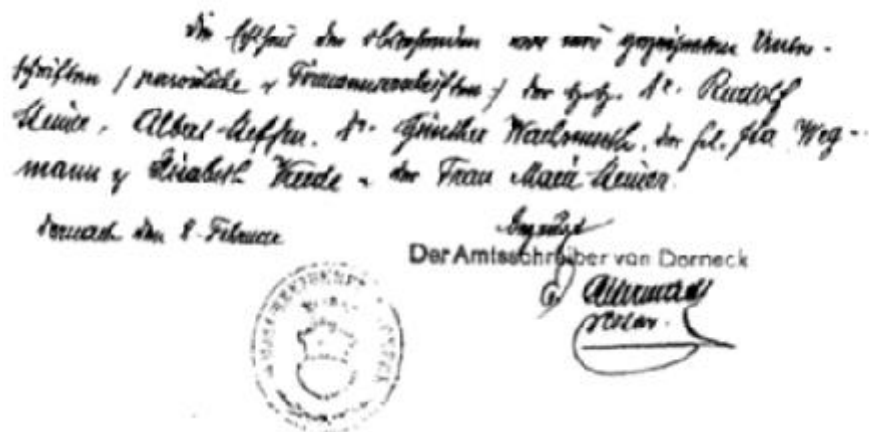 Die Echtheit der obstehenden vor mir gezeichneten Unter-
schriften / persönliche & Firmaunterschriften / der Hrh. Dr. Rudolf
Steiner, Albert Steffen, Dr. Günther Wachsmuth, der Frl. Ita Weg-
mann & Elisabeth Vreede & der Frau Marie Steiner
Dornach den 8. Februar
beglaubigt
Der Amtsschreiber von Dorneck
Altermatt
Notar.